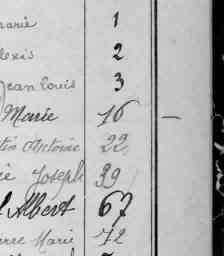 marie 1
lexis 2
Jean Louis 3
Marie 16
Antoine 22
Joseph 39
Albert 67
Marie 72